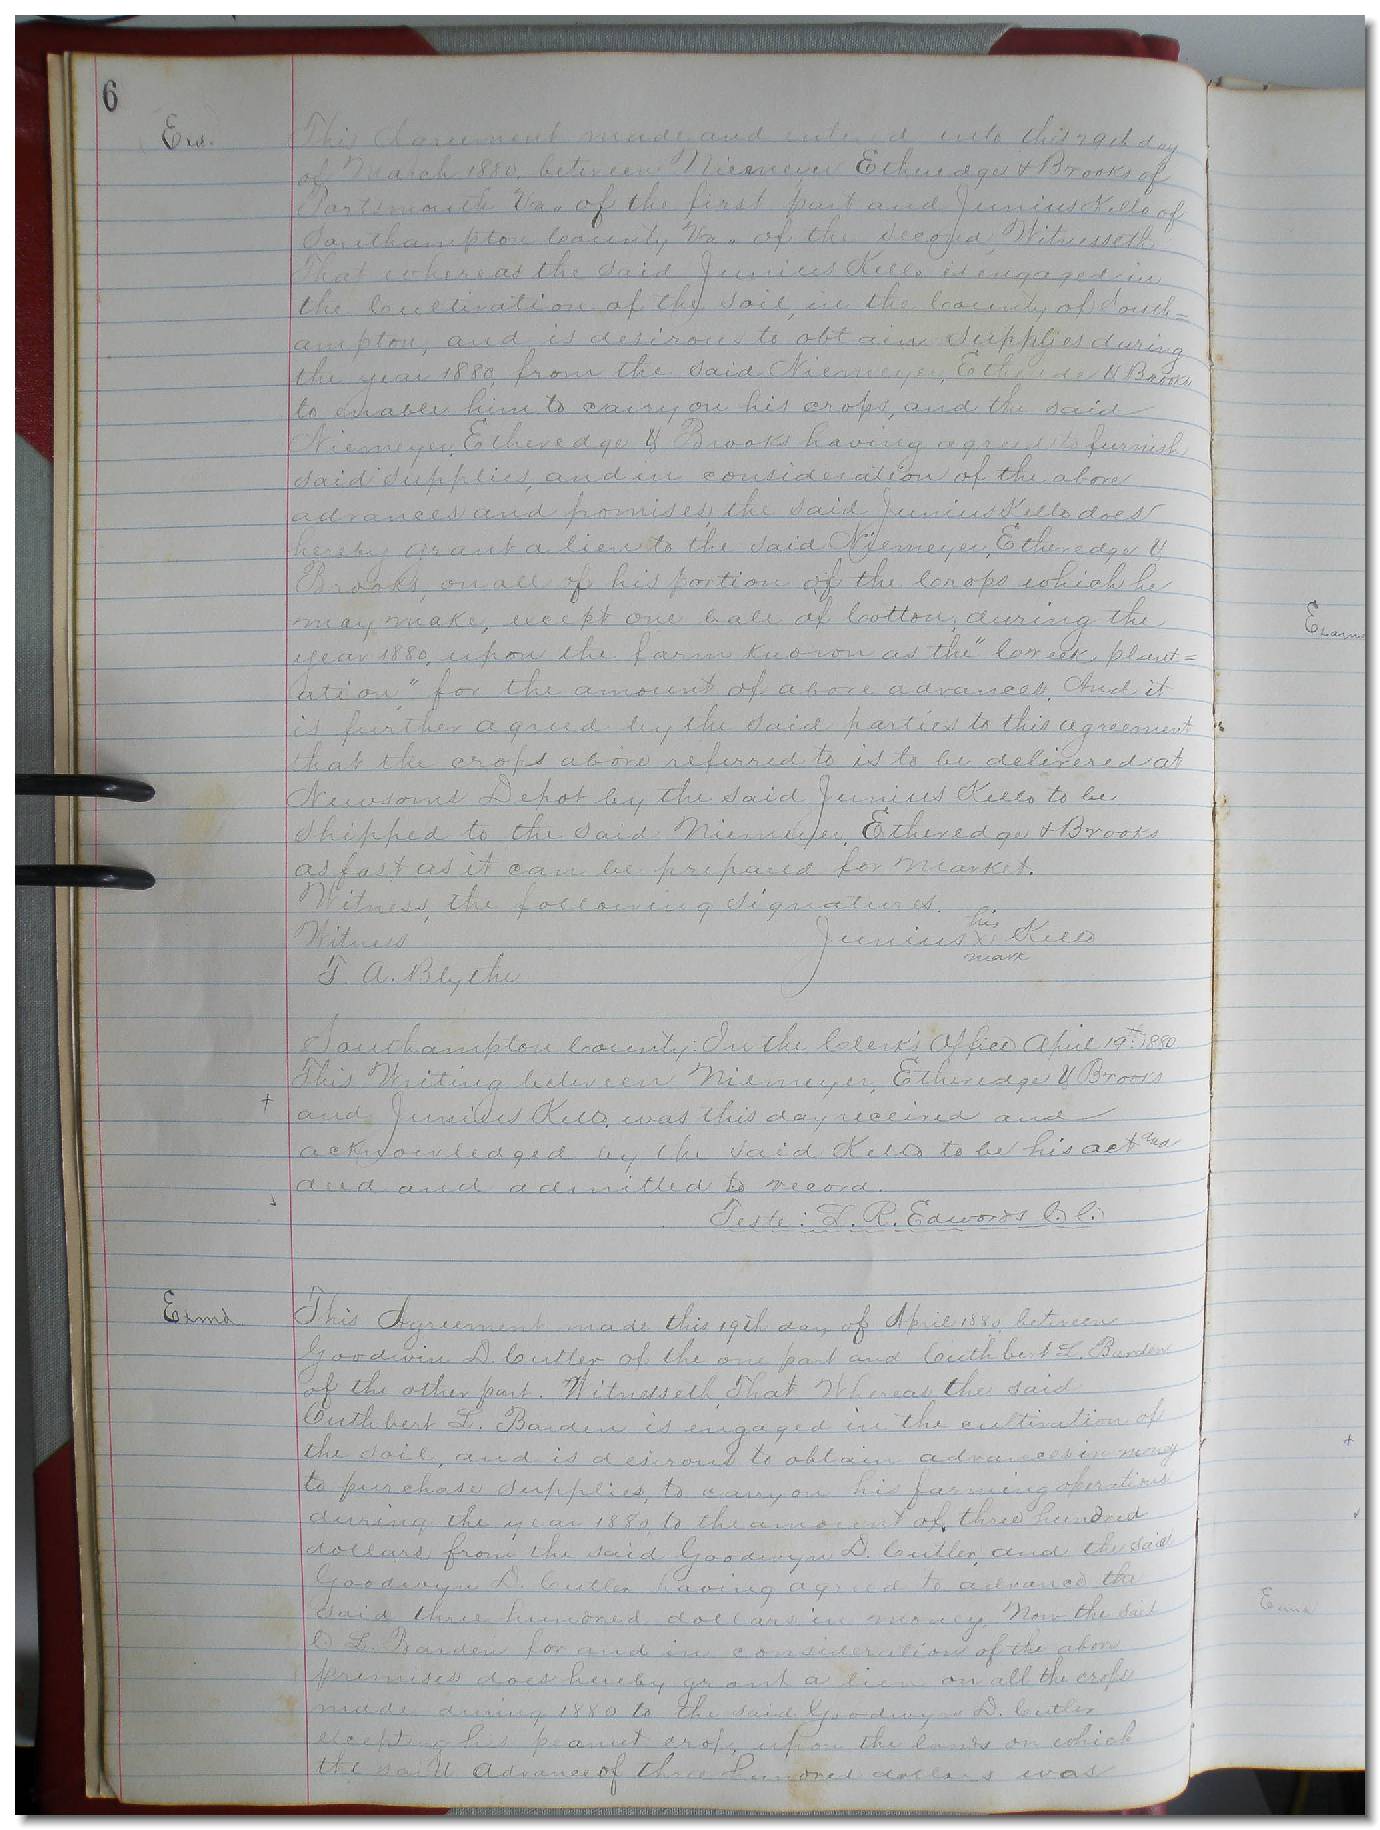 6
Exd.
This Agreement made and enterd into this 29th day
of March 1880, between Niemeyer Etheredge & Brooks of
Portsmouth Va. of the first part and Junius Kello of
Southampton County Va. of the second, Witnesseth
That whereas the said Junius Kello is engaged in
the Cultivation of the soil, in the County of South=
ampton, and is desirous to obtain supplies during
the year 1880, from the said Niemeyer, Etheredge & Brooks
to enable him to carry on his crops, and the said
Niemeyer, Etheredge & Brooks having agreed to furnish
said supplies, and in consideration of the above
advances and promises, the said Junius Kello does
hereby grant a lien to the said Niemeyer, Etheredge &
Brooks, on all of his portion of the Crops which he
may make, except one bale of Cotton, during the
year 1880, upon the farm known as the " plant=
ation," for the amount of above advances. And it
is further agreed by the said parties to this agreement
that the crops above referred to is to be delivered at
Newsoms Depot by the said Junius Kello to be
shipped to the said Niemeyer, Etheredge & Brooks
as fast as it can be prepared for market.
Witness, the following signatures.
his
Witness Junius X Kello
mark
T. A. Blythe
Southampton County: In the Clerk's Office April 19th 1880
This Writing between Niemeyer, Etheredge & Brooks
and Junius Kello, was this day received and
acknowledged by the said Kello to be his act and
and and admitted to record.
Teste: L. R. Edwards C. C.
Exmd
This Agreement made this 19th day of April 1880, between
Goodwin D. Cutler of the one part and Cuthbert L. Barden
of the other part. Witnesseth, That Whereas the said
Cuthbert L. Barden is engaged in the cultivation of
the soil, and is desirous to obtain advances in money
to purchase supplies, to carry on his farming operations
during the year 1880, to the amount of three hundred
dollars from the said Goodwyn D. Cutler, and the said
Goodwyn D. Cutler having agreed to advance the
said three hundred dollars in money, Now the said
C L. Barden for and in consideration of the above
premises does hereby grant a lien on all the crops
made during 1880 to the said Goodwyn D. Cutler
excepting his peanut crop, upon the lands on which
the said advance of three hundred dollars was